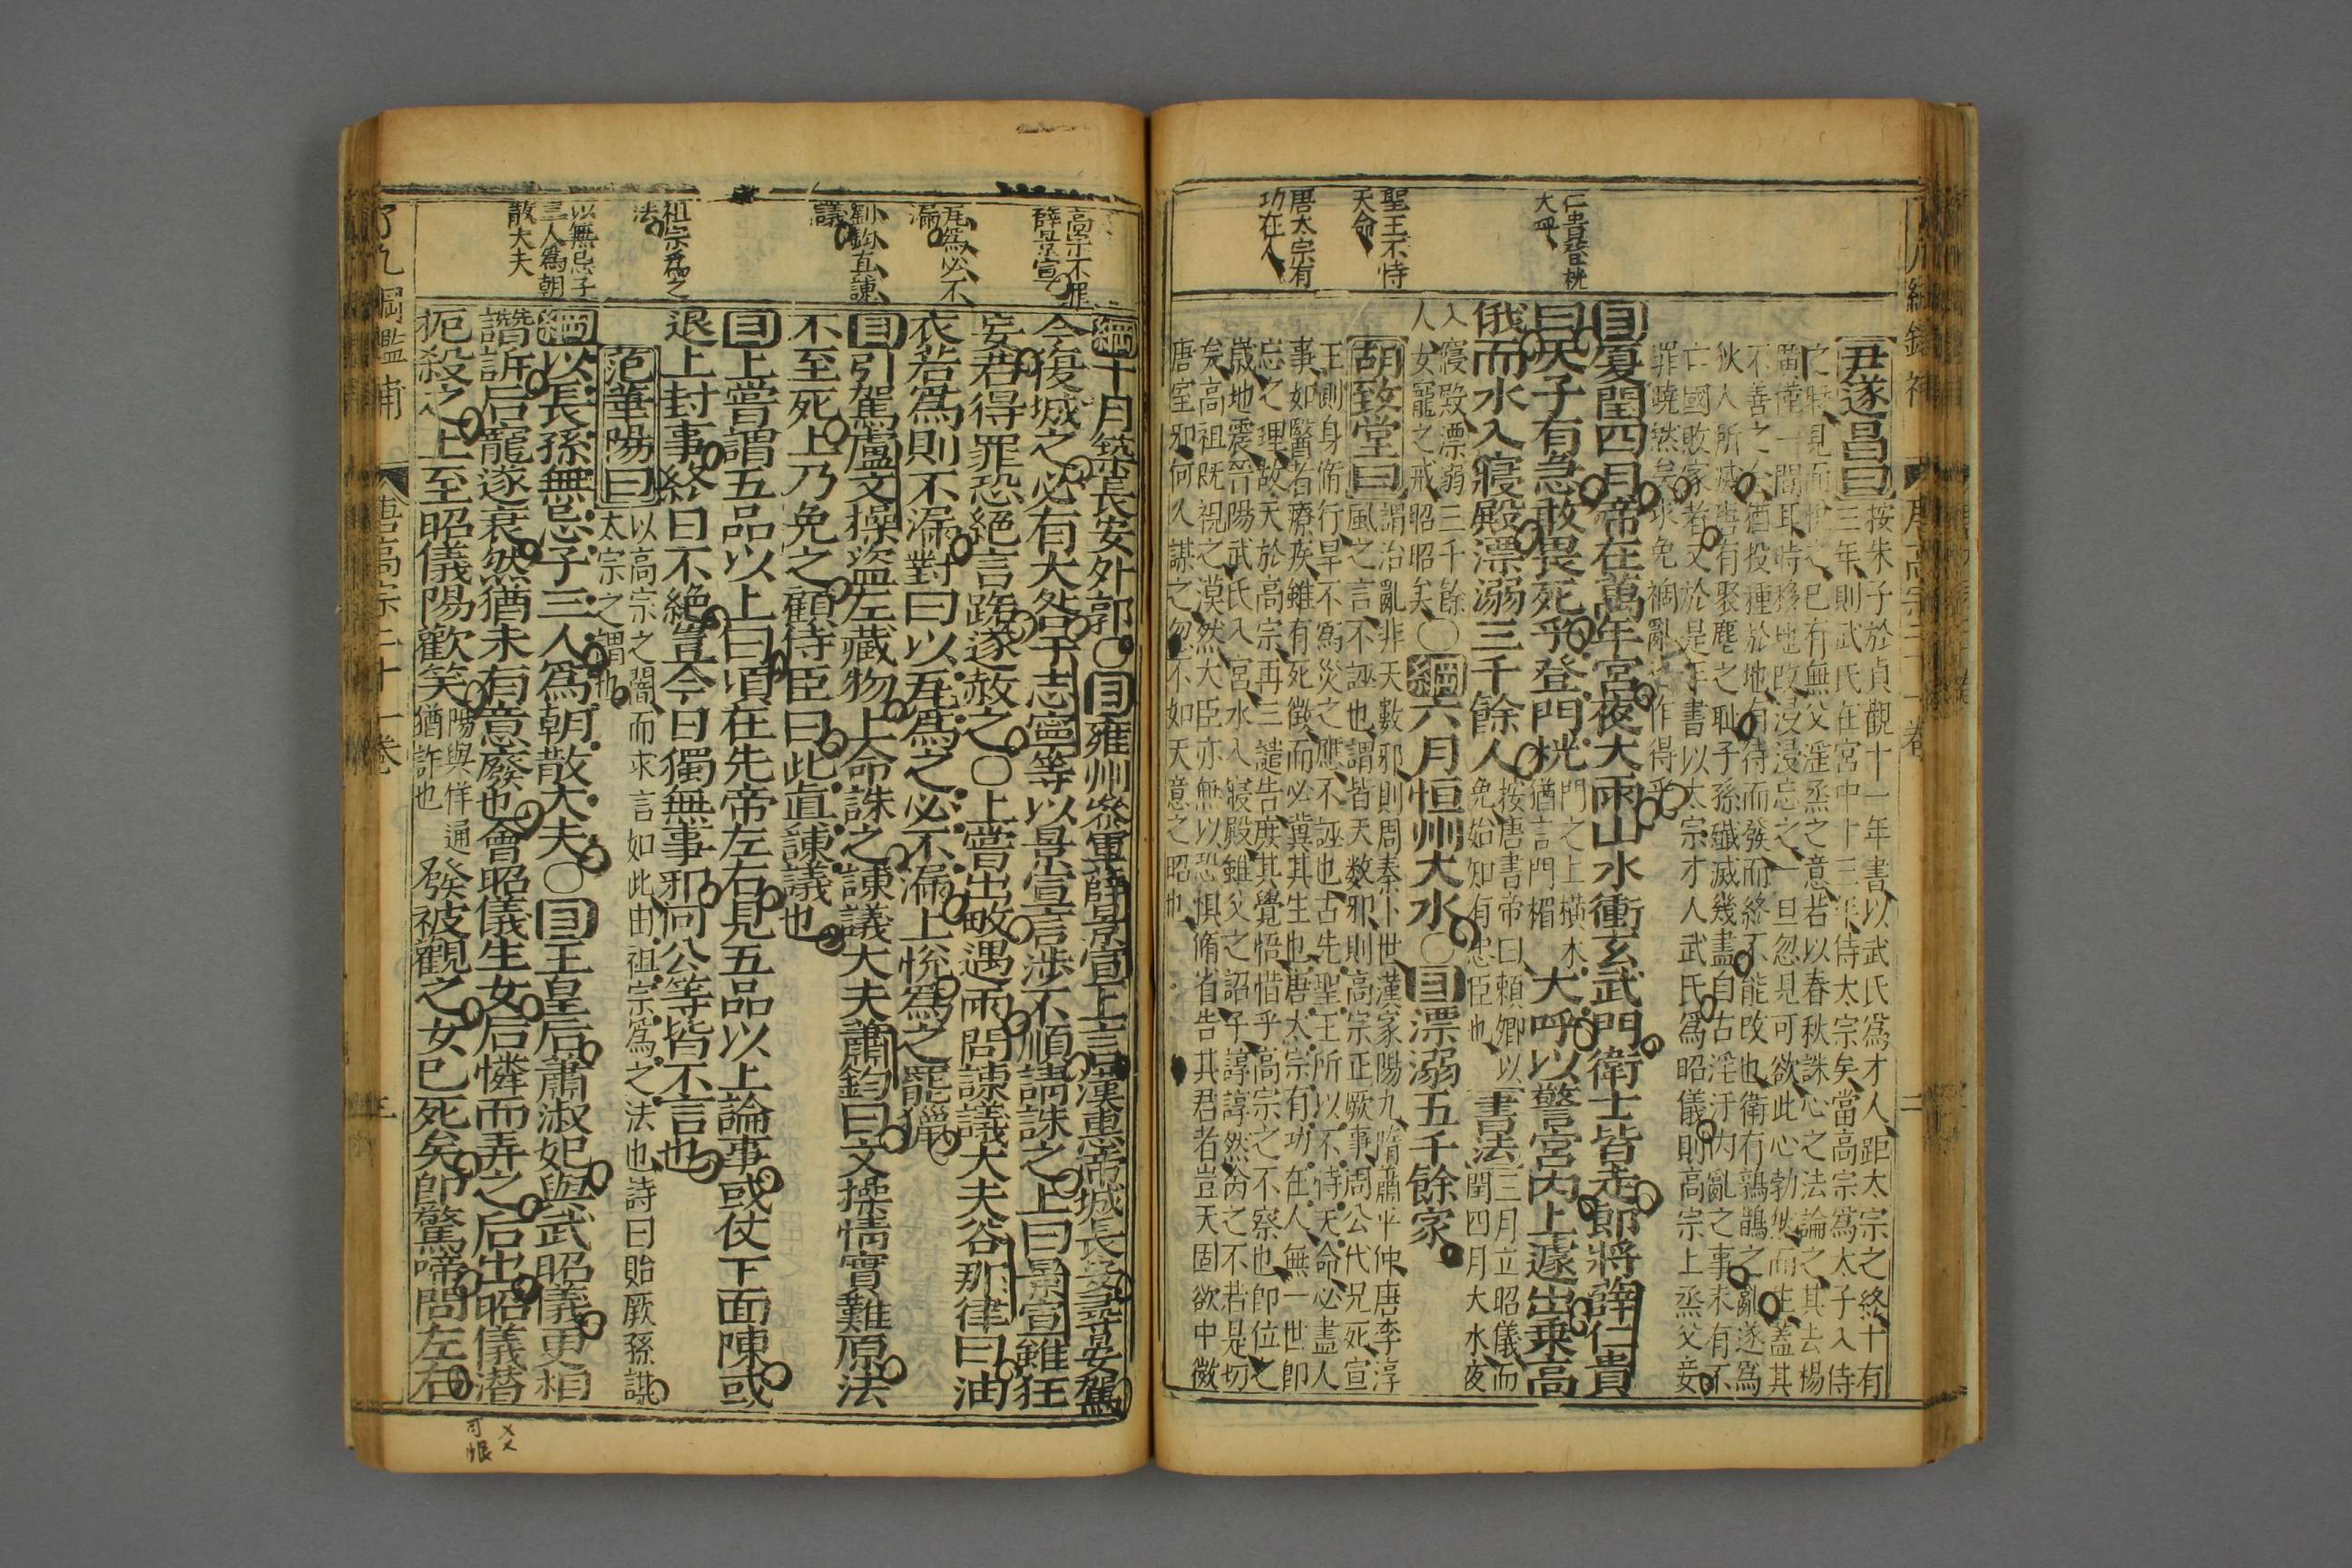 尹遂昌曰按朱子於貞觀十一年書以武氏爲才人距太宗之終十有
三年則武氏在宮中十三年侍太宗矣當高宗爲太子入侍
之時見而悅之已有無父淫烝之意若以春秋誅心之法論之其去楊
廣僅一間耳時移地改浸浸忘之一旦忽見可欲此心勃然而生蓋其
不善之念猶投種於地有待而發而終不能改也衛有鶉鵲之亂遂爲
狄人所滅唐有聚麀之耻子孫殲滅幾盡自古淫汙內亂之事未有不
亡國敗家者又於是手書以太宗才人武氏爲昭儀則高宗上烝父妾
罪曉然矣求免禍亂之作得乎
仁貴登桄
大呼
目夏閏四月帝在萬年宮夜大雨山水衝玄武門衛士皆走郎將薛仁貴
曰天子有急敢畏死乎登門桄門之上橫木
猶言門楣大呼以警宮內上遽出乗高
俄而水入寢殿漂溺三千餘人按唐書帝曰賴卿以
免始知有忠臣也書法三月立昭儀而
閏四月大水夜
入寢殿漂溺三千餘
人女寵之戒昭昭矣〇綱六月恒州大水〇目漂溺五千餘家
聖王不恃
天命
唐太宗有
功在人
胡致堂曰謂治亂非天數邪則周秦卜世漢家陽九隋蕭平仲唐李淳
風之言不誣也謂皆天数邪則高宗正厥事周公代兄死宣
王側身脩行旱不爲災之應不誣也古先聖王所以不恃天命必盡人
事如醫者療疾雖有死徴而必冀其生也唐太宗有功在人無一世卽
忘之理故天於高宗再三譴告庶其覺悟惜乎高宗之不察也卽位之
歲地震晉陽武氏入宮水入寢殿雖父之詔子諄諄然尚之不若是切
矣高祖既視之漠然大臣亦無以恐惧脩省告其君者豈天固欲中微
唐室邪何人謀之忽不如天意之昭也
高宗不罪
薛景宣
綱十月築長安外郭〇目雍州參軍薛景宣上言漢惠帝城長安尋晏駕
今復城之必有大咎于志寧等以景宣言涉不順請誅之上曰景宣雖狂
妄若得罪恐絕言路遂赦之〇上嘗出畋遇雨問諫議大夫谷那律曰油
瓦爲必不
漏
衣若爲則不漏對曰以瓦爲之必不漏上恱爲之罷獵
劉鈞直諌
議
目引駕盧文操盜左藏物上命誅之諌議大夫蕭鈞曰文操情實難原法
不至死上乃免之顧侍臣曰此眞諌議也
目上嘗謂五品以上曰頃在先帝左右見五品以上論事或仗下面陳或
祖宗爲之
法
退上封事終日不絶豈今日獨無事邪何公等皆不言也
范華陽曰以高宗之闇而求言如此由祖宗爲之法也詩曰貽厥孫謀
太宗之謂也
以無忌子
三人爲朝
散大夫
綱以長孫無忌子三人爲朝散大夫〇目王皇后蕭淑妃與武昭儀更相
譖訴后寵遂衰然猶未有意廢也會昭儀生女后憐而弄之后出昭儀潜
扼殺之上至昭儀陽歡笑陽與佯通
猶詐也發被觀之女已死矣卽驚啼問左右
唐高宗二十一卷
三
可恨